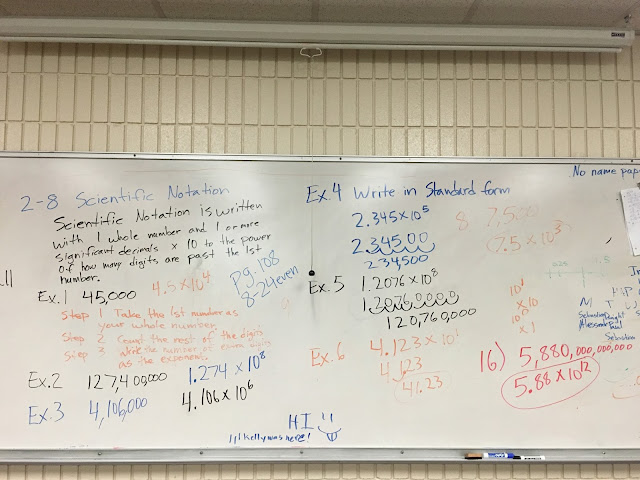 2-8 Scientific Notation
Scientific Notation is written
with 1 whole number and 1 or more
significant decimals x 10 to the power
of how many digits are past the 1st
number.
Ex.1 45,000 4.5 x 10⁴
pg. 108
8-24 even
Step 1 Take the 1st number as
your whole number.
Step 2 Count the rest of the digits
Step 3 write the number of extra digits
as the exponent.
Ex.2 127,400,000 1.274 x 10⁸
Ex.3 4,106,000 4.106 x 10⁶
HI
Kelly was here!
Ex.4 Write in Standard form
2.345 x 10⁵
2.34500
234,500
Ex.5 1.2076 x 10⁸
1.20760000
120,760,000
Ex.6 4.123 x 10¹
4.123
41.23
8 7,500
7.5 x 10³
No name pap
16) 5,880,000,000,000
5.88 x 10¹²
M T
Sebastian
Sebastian